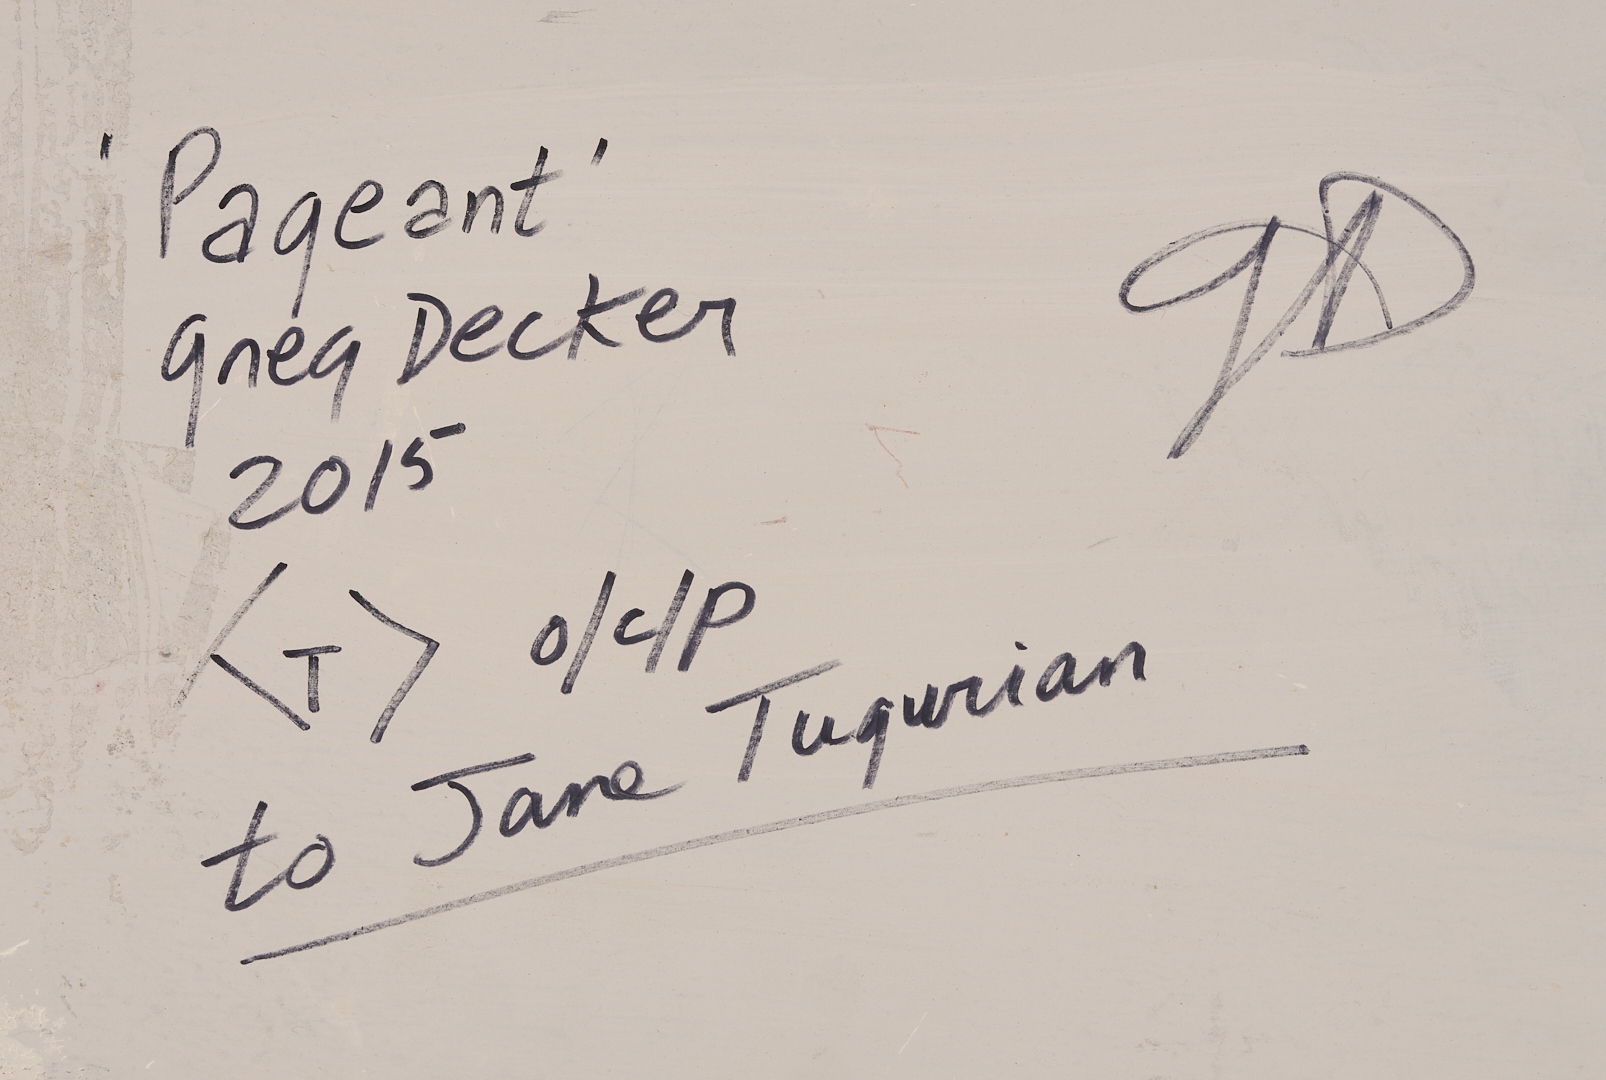 'Pageant'
greg Decker
2015
<T> o/c/p
to Jane Tugurian
gD